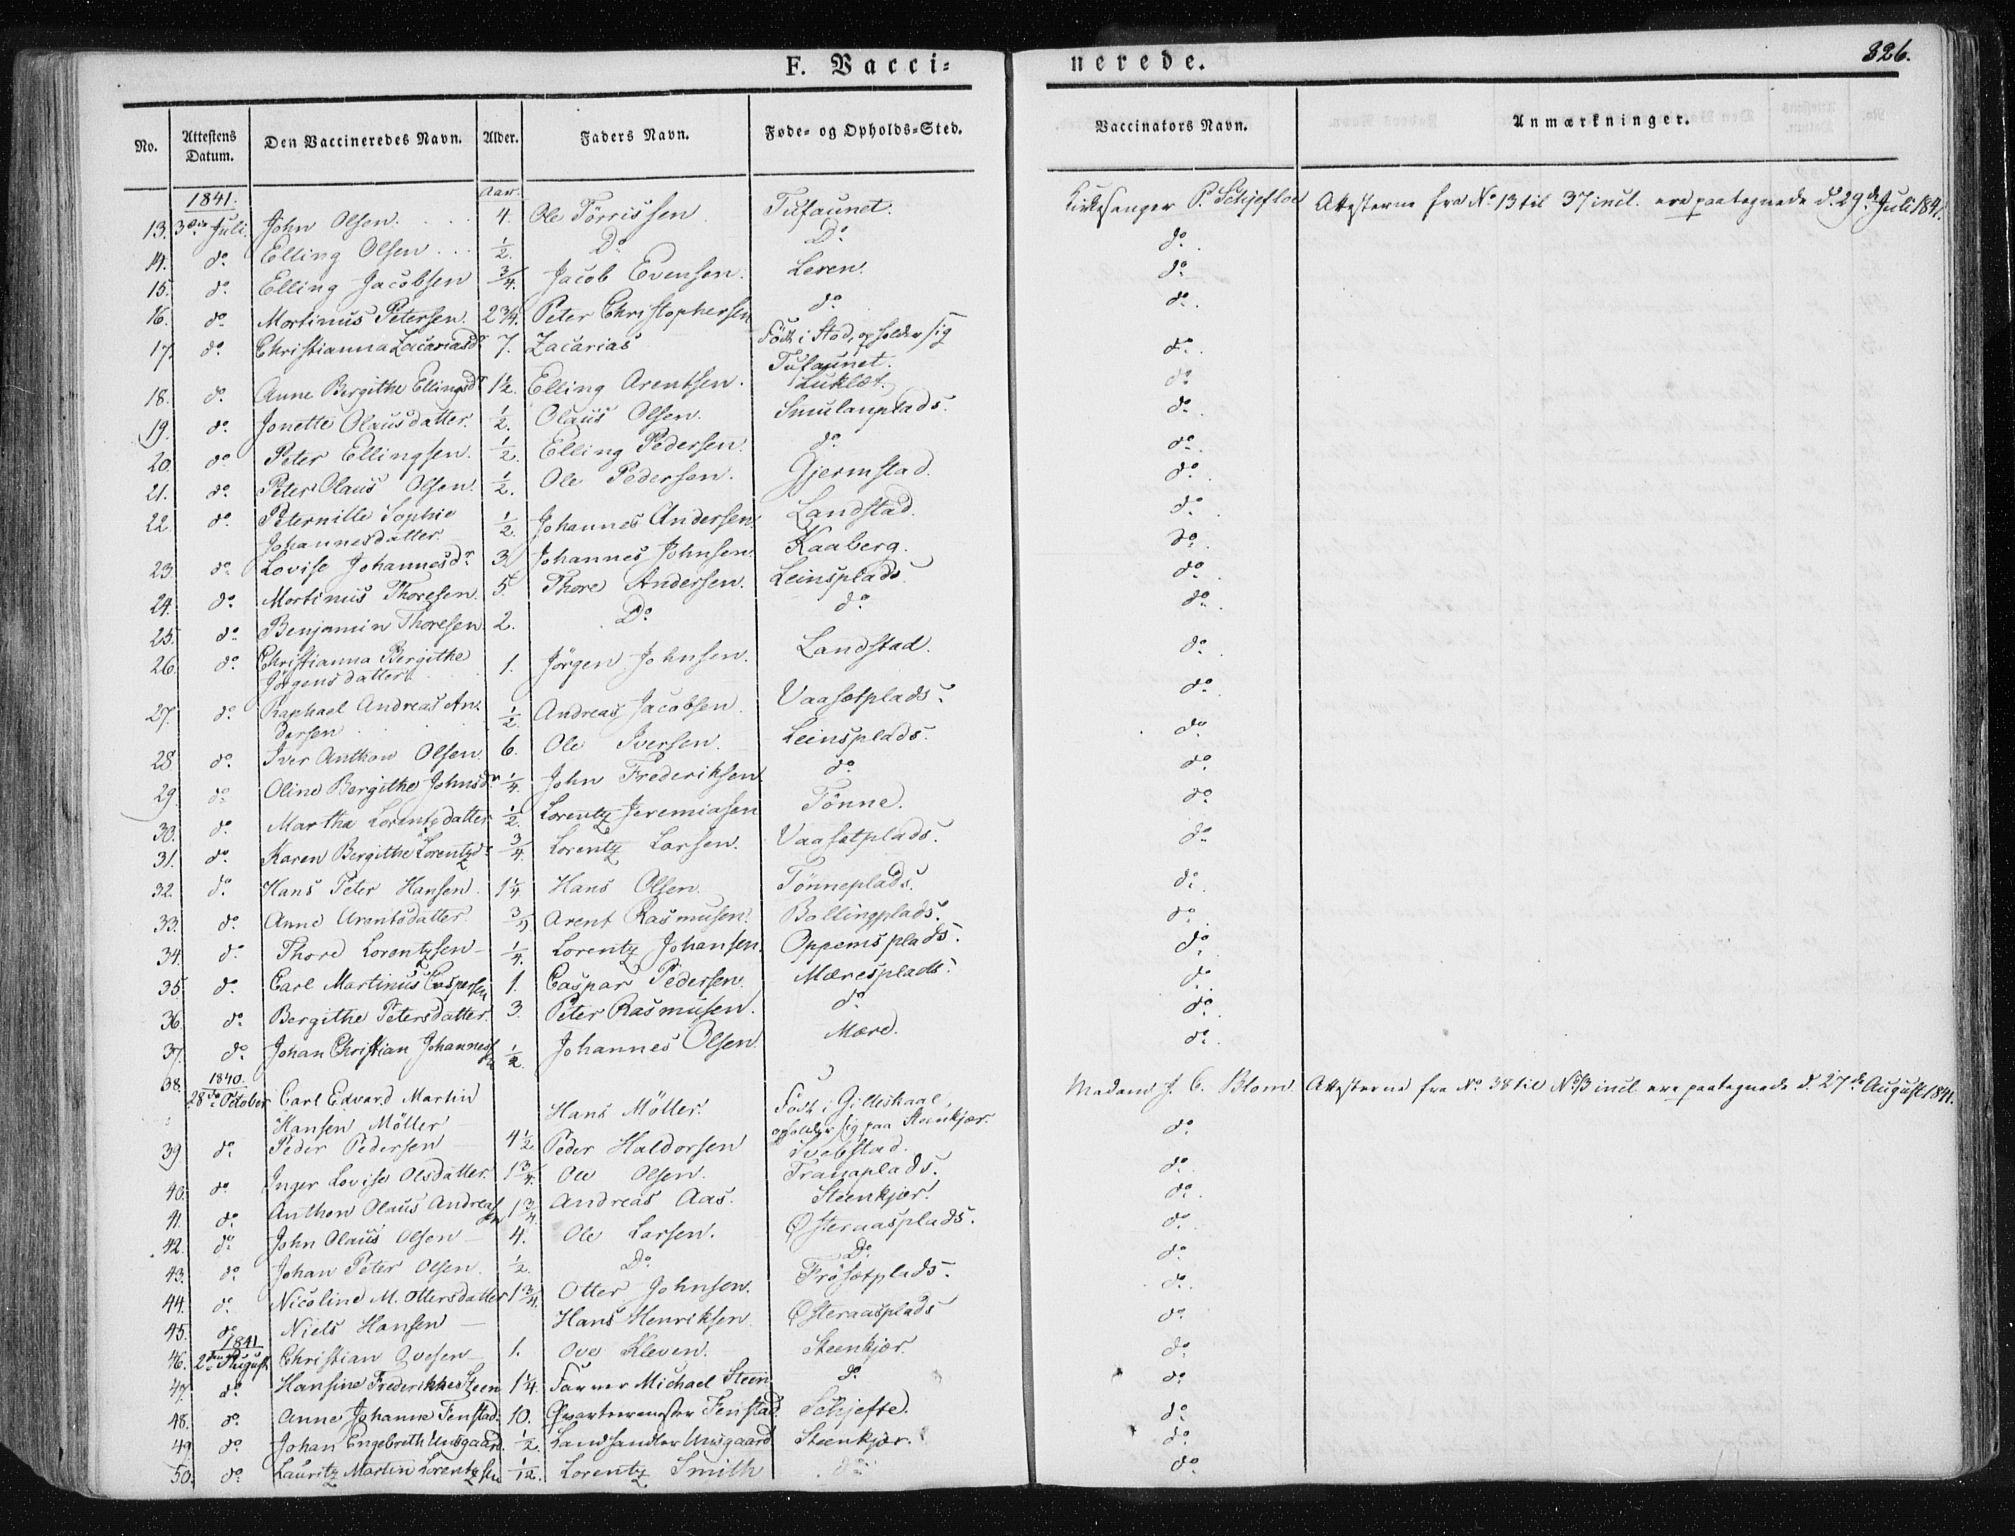 F. Vacci-
nerede.
326.
No.
Attestens Datum.
Den Vaccineredes Navn.
Alder.
Faders Navn.
Føde- og Opholds-Sted.
Vaccinators Navn.
Anmærkninger.
1841. Aar.
13. 3die Juli. John Olsen. 4. Ole Törrissen Tufaunet. Kirkesanger P. Schjefloe Attesterne fra No 13 til 37 incl. ere paategnede d. 29de Juli 1841.
14. do. Elling Olsen 1/2. Do Do. do.
15. do. Elling Jacobsen 3/4. Jacob Evensen. Leren. do.
16. do. Mortinus Petersen. 2 3/4. Peter Christophersen do do.
17. do. Christianna Zacariasdr 7. Zacarias Født i Stod, opholder sig do.
Tufaunet.
18. do. Anne Bergithe Ellingsdr 1 1/2. Elling Arentsen. do
19. do. Jonette Olausdatter. 1/2. Olaus Olsen. Smulanplads. do.
20. do Peter Ellingsen. 1/2. Elling Pedersen. do. do.
21. do. Peter Olaus Olsen. 1/2. Ole Pedersen. Gjermstad. do.
22. do. Peternille Sophie 1/2. Johannes Andersen. Landstad. do.
Johannesdatter
23. do. Lovise Johannesdr 3. Johannes Johnsen. Kaaberg. do.
24. do. Mortinus Thoresen. 5. Thore Andersen. Leinsplads. do.
25. do. Benjamin Thoresen. 2. Do do. do.
26. do. Christianna Bergithe 1. Jörgen Johnsen. Landstad. do.
Jörgensdatter
27. do. Raphael Andreas An- 1/2. Andreas Jacobsen. Vaasetplads. do.
dersen
28. do. Iver Anthon Olsen. 6. Ole Iversen. Leinsplads. do.
29. do Oline Bergithe Johnsdr 1/4. John Frederiksen do. do.
30. do. Martha Lorentzdatter 1/2. Lorentz Jeremiasen Tönne. do.
31. do. Karen Bergithe Lorentzdr 3/4. Lorentz Larsen. Vaasetplads. do
32. do. Hans Peter Hansen. 1 1/4. Hans Olsen. Tönneplads. do.
33. do. Anne Arentsdatter 3/4 Arent Rasmusen. Bollingplads. do.
34. do. Thore Lorentzsen 1/4. Lorentz Johansen. Oppemsplads. do.
35. do. Carl Martinus Caspersen 1. Caspar Pedersen. Mæresplads. do.
36. do. Bergithe Petersdatter. 3. Peter Rasmusen. do. do.
37. do. Johan Christian Johannessen 1/2. Johannes Olsen. Mære. do.
38. 1840.
28de October Carl Edvard Martin Hans Möller. Født i Gilleskaal, Madam J. C. Blom. Attesterne fra No 38 til No 73 incl. ere paategnede d. 27de August 1841.
Hansen Möller opholder sig paa Steenkjær.
39 do. Peder Pedersen 4 1/2 Peder Haldorsen do.
40. do. Inger Lovise Olsdatter. 1 3/4. Ole Olsen. Tranaplads. do.
41. do. Anthon Olaus Andreassen 1 3/4 Andreas Aas. Steenkjær. do.
42. do. John Olaus Olsen 4. Ole Larsen. Østeraasplads. do.
43. do. Johan Peter Olsen. 1/2. Do Do. do.
44. do. Nicoline M. Ottersdatter 1 3/4. Otter Johnsen. Frösetplads. do.
45. do. Niels Hansen Hans Henriksen Østeraasplads do.
1841
46. 2den August Christian Ovesen 1. Ove Kleven. Steenkjær. do.
47. do. Hansine Frederikke Steen 1 1/4. Farver Michael Steen do. do.
48. do. Anne Johanne Fenstad. 10. Qvarteermester Fenstad. Schjefte. do.
49. do. Johan Engebreth Unsgaard. 1/2. Landhandler Unsgaard Steenkjær. do.
50. do. Lauritz Martin Lorentzsen 1/12. Lorentz Smith do. do.